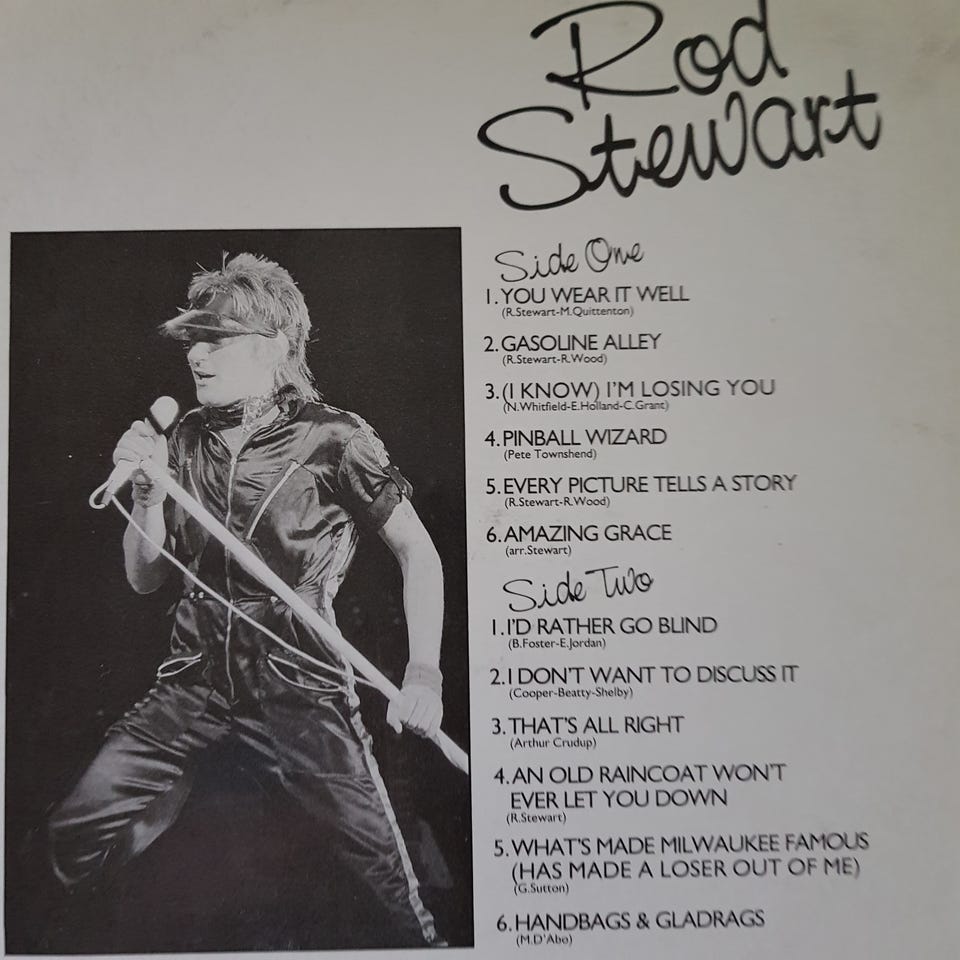 Rod
Stewart
Side One
1. YOU WEAR IT WELL
(R.Stewart-M.Quittenton)
2. GASOLINE ALLEY
(R.Stewart-R.Wood)
3. (I KNOW) I'M LOSING YOU
(N.Whitfield-E.Holland-C.Grant)
4. PINBALL WIZARD
(Pete Townshend)
5. EVERY PICTURE TELLS A STORY
(R.Stewart-R.Wood)
6. AMAZING GRACE
(arr.Stewart)
Side Two
1. I'D RATHER GO BLIND
(B.Foster-E.Jordan)
2. I DON'T WANT TO DISCUSS IT
(Cooper-Beatty-Shelby)
3. THAT'S ALL RIGHT
(Arthur Crudup)
4. AN OLD RAINCOAT WON'T
EVER LET YOU DOWN
(R.Stewart)
5. WHAT'S MADE MILWAUKEE FAMOUS
(HAS MADE A LOSER OUT OF ME)
(G.Sutton)
6. HANDBAGS & GLADRAGS
(M.D'Abo)